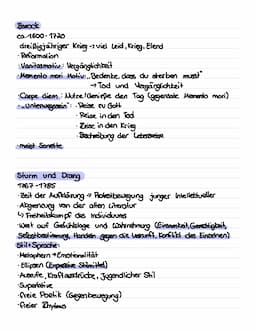 Barock
ca. 1600 - 1720
dreißigjähriger Krieg → viel Leid, Krieg, Elend
· Reformation
· Vanitasmotiv: Vergänglichkeit
· Memento mori Motiv: „Bedenke, dass du sterben musst"
→ Tod und Vergänglichkeit
· Carpe diem: Nutze/Genieße den Tag (gegenteil Memento mori)
· „Unterwegssein": · Reise zu Gott
· Reise in den Tod
· Reise in den Krieg
· Beschreibung der Lebensreise
· meist Sonette
Sturm und Drang
1767 - 1785
· Zeit der Aufklärung → Protestbewegung junger Intellektueller
· Abgrenzung von der alten Literatur
↳ Freiheitskampf des Individuums
· Wert auf Gefühlslage und Wahrnehmung (Einsamkeit, Gerechtigkeit,
Selbstbestimmung, Handeln gegen die Vernunft, Konflikt des Einzelnen)
Stil + Sprache:
· Metaphern → Emotionalität
· Ellipsen (Expressive Stilmittel)
· Ausrufe, Kraftausdrücke, Jugendlicher Stil
· Superlative
· freie Poetik (Gegenbewegung)
· freier Rhythmus